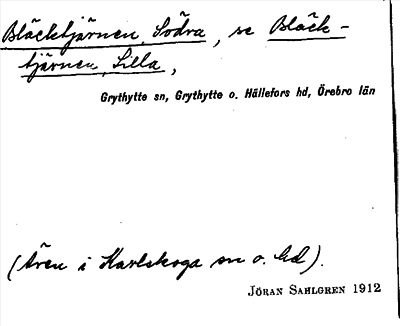 Bläcktjärnen, Södra, se Bläck-
tjärnen, Lilla,
Grythytte sn, Grythytte o. Hällefors hd, Örebro län
(Även i Karlskoga sn o. hd).
JÖRAN SAHLGREN 1912